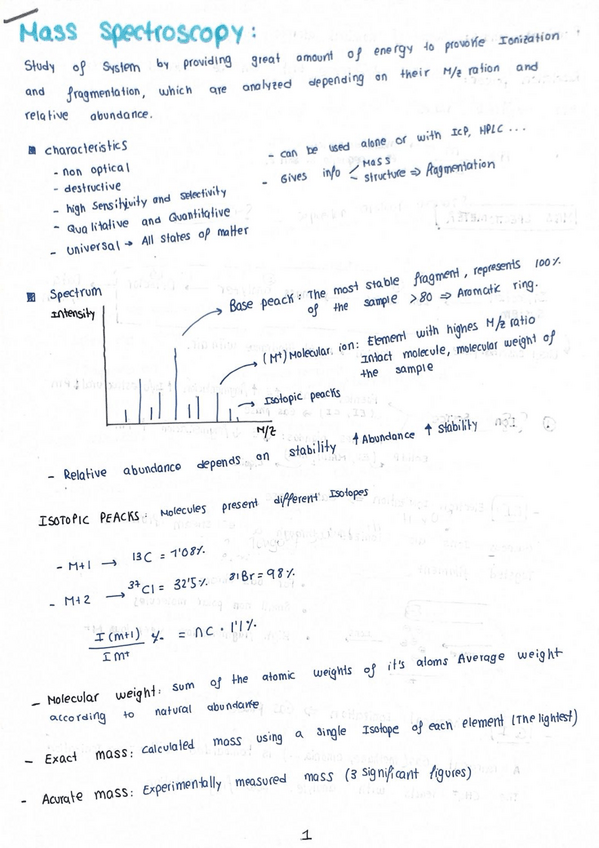 Mass Spectroscopy:
Study of System by providing great amount of energy to provoke Ionization
and fragmentation, which are analyzed depending on their M/z ration and
relative abundance.
characteristics
- non optical
- destructive
- high Sensitivity and Selectivity
- Qualitative and Quantitative
- Universal → All States of matter
- can be used alone or with ICP, HPLC ...
- Gives info < Mass
Structure ⇒ fragmentation
Spectrum
Intensity
Base peack: The most stable fragment, represents 100%
of the sample >80 ⇒ Aromatic ring.
(M+) Molecular ion: Element with highes M/z ratio
Intact molecule, molecular weight of
the sample
Isotopic peacks
M/Z
- Relative abundance depends on stability ↑ Abundance ↑ Stability
ISOTOPIC PEACKS: Molecules present different Isotopes
- M+1 → 13C = 1'08%
- M+2 → 37Cl = 32'5% 81Br = 98%
I(m+1) / I m+ % = nC · 1'1%
- Molecular weight: sum of the atomic weights of it's atoms Average weight
according to natural abundance
- Exact mass: calculated mass using a single Isotope of each element (The lightest)
- Acurate mass: Experimentally measured mass (3 significant figures)
1